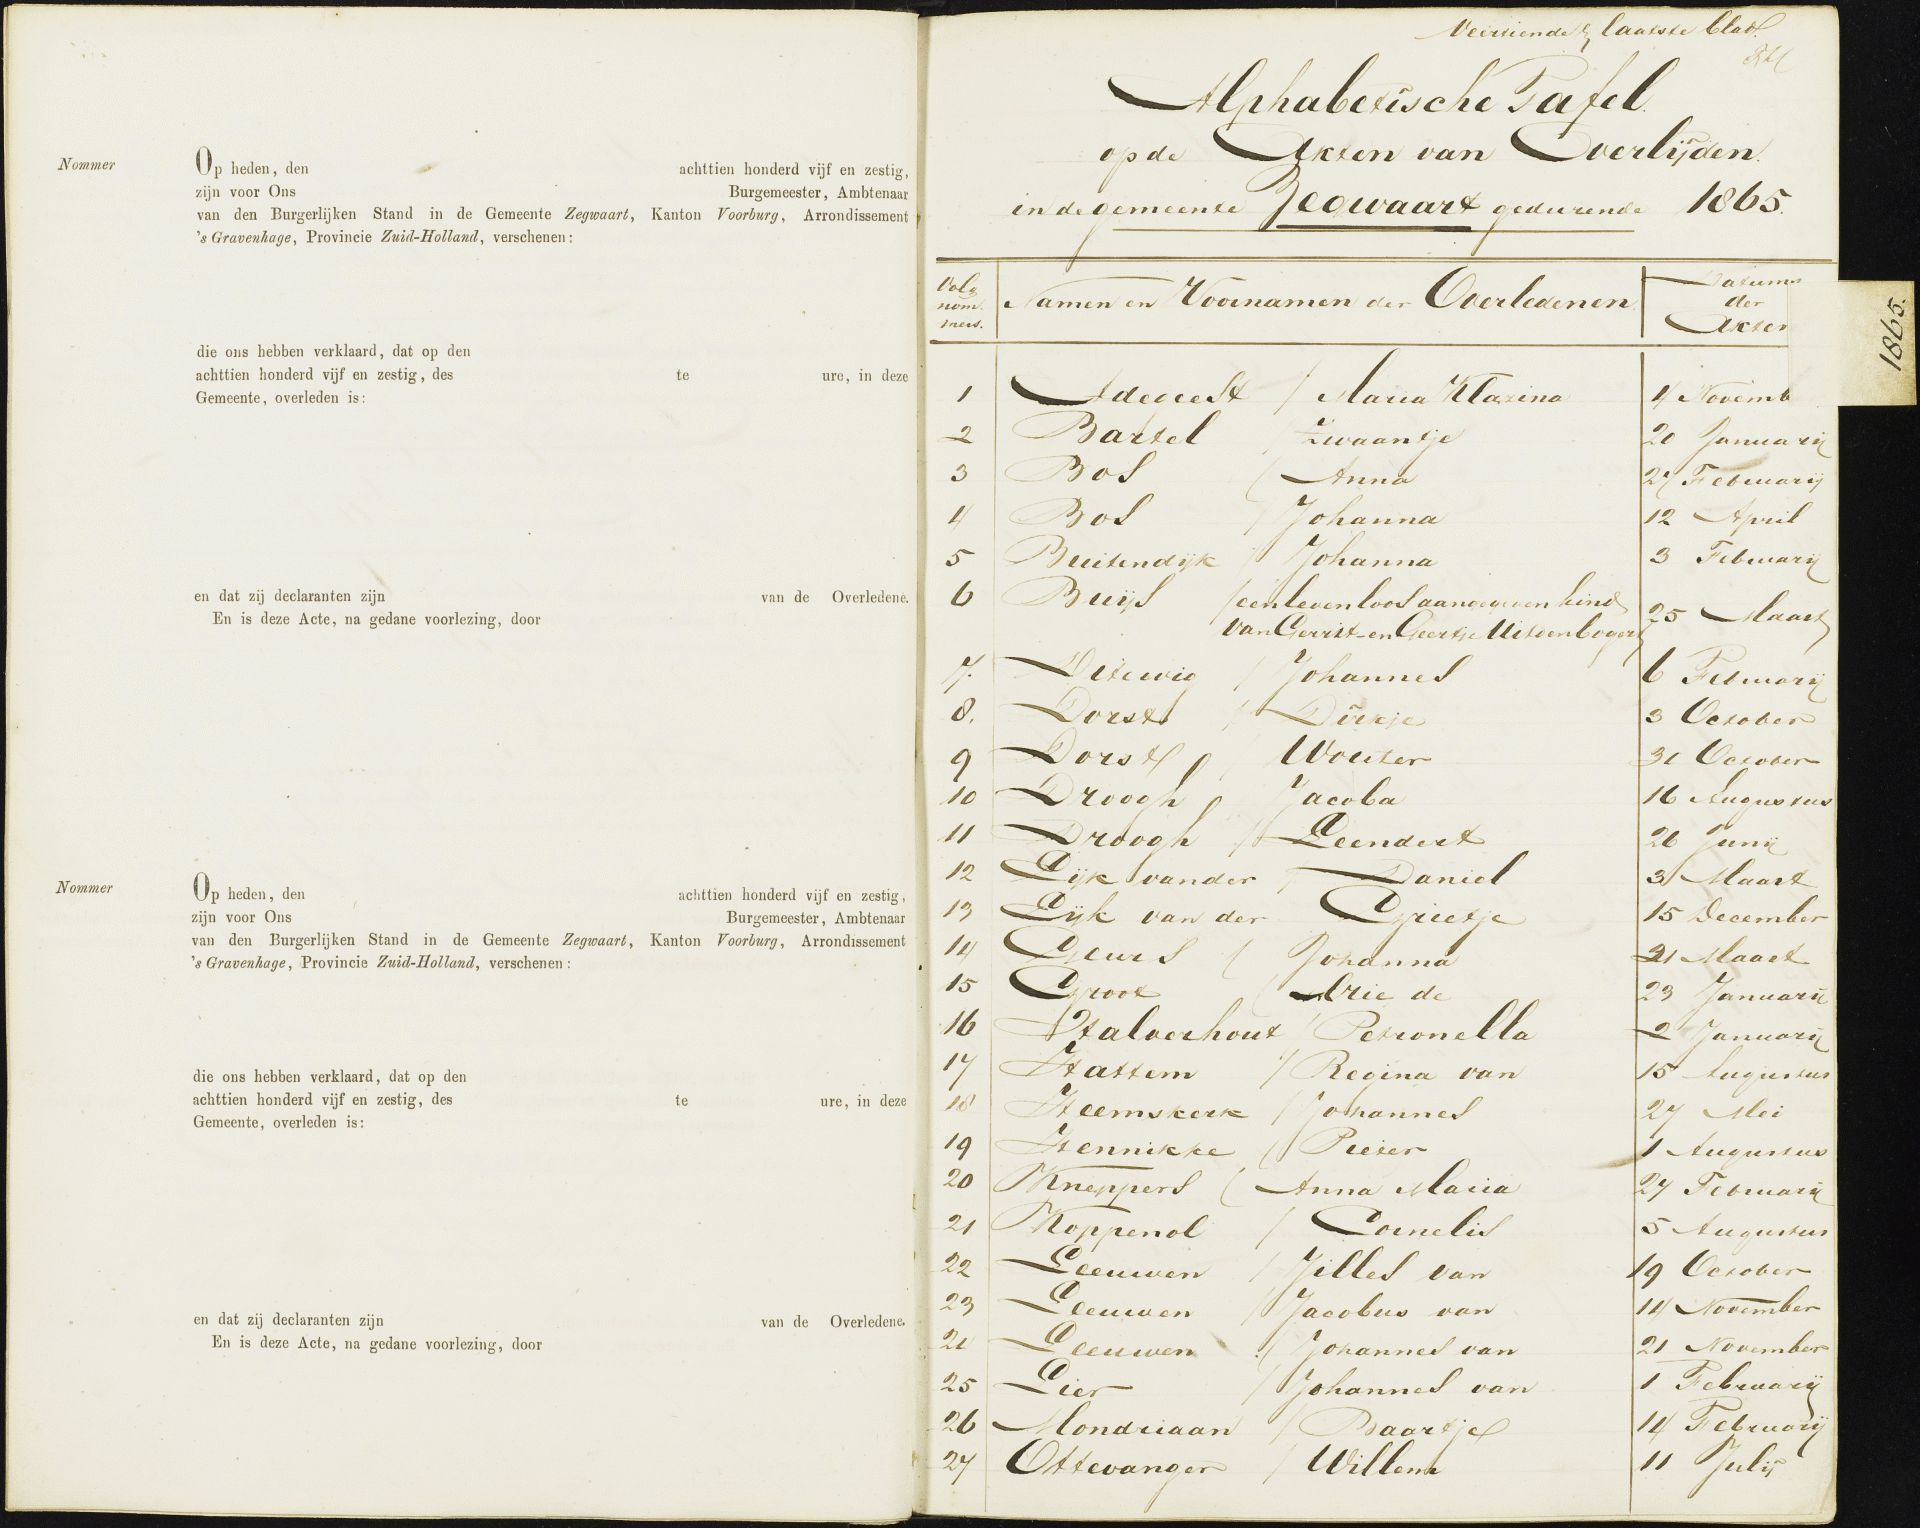 Nommer
Op heden, den achttien honderd vijf en zestig,
zijn voor Ons Burgemeester, Ambtenaar
van den Burgerlijken Stand in de Gemeente Zegwaart, Kanton Voorburg, Arrondissement
's Gravenhage, Provincie Zuid-Holland, verschenen:
die ons hebben verklaard, dat op den
achttien honderd vijf en zestig, des te ure, in deze
Gemeente, overleden is:
en dat zij declaranten zijn van de Overledene.
En is deze Acte, na gedane voorlezing, door
Nommer
Op heden, den achttien honderd vijf en zestig,
zijn voor Ons Burgemeester, Ambtenaar
van den Burgerlijken Stand in de Gemeente Zegwaart, Kanton Voorburg, Arrondissement
's Gravenhage, Provincie Zuid-Holland, verschenen:
die ons hebben verklaard, dat op den
achttien honderd vijf en zestig, des te ure, in deze
Gemeente, overleden is:
en dat zij declaranten zijn van de Overledene.
En is deze Acte, na gedane voorlezing, door
Veertiende & laatste blad
Alphabetische Tafel.
op de Akten van Overlijden.
in de gemeente Zegwaart gedurende 1865.
Volg nom. mers. Namen en Voornamen der Overledenen Datums der Akten
1865.
1 Adegeest / Maria Klazina 4 Novemb
2 Bartel / Zwaantje 20 Januarij
3 Bos / Anna 27 Februarij
4 Bos / Johanna 12 April
5 Buitendijk / Johanna 3 Februarij
6 Buijs / een levenloos aangegeven kind
van Gerrit en Geertje Uitdenbogerd 25 Maart
7. Ditewig / Johannes 6 Februarij
8. Dorst / Dirkje 3 October
9 Dorst / Wouter 31 October
10 Droogh / Jacoba 16 Augustus
11 Droogh / Leendert 26 Junij
12 Eijk van der / Daniel 3 Maart
13 Eijk van der Grietje 15 December
14 Geurs / Johanna 21 Maart
15 Groot / Arie de 23 Januarij
16 Halverhout / Petronella 2 Januarij
17 Hattem / Regina van 15 Augustus
18 Heemskerk / Johannes 27 Mei
19 Hennikke / Pieter 1 Augustus
20 Kneppers / Anna Maria 27 Februarij
21 Koppenol / Cornelis 5 Augustus
22 Leeuwen / Jilles van 19 October
23 Leeuwen / Jacobus van 14 November
24 Leeuwen / Johannes van 21 November
25 Lier / Johannes van 1 Februarij
26 Mondriaan / Baartje 14 Februarij
27 Ottevanger / Willem 11 Julij